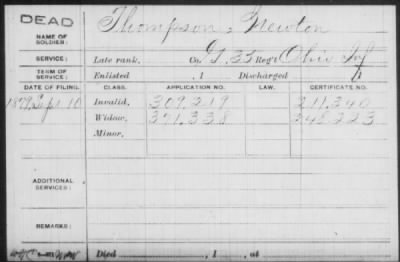 DEAD
NAME OF SOLDIER: Thompson, Newton
SERVICE: Late rank, Co. G, 35 Reg't Ohio Inf
TERM OF SERVICE: Enlisted , 1 Discharged , 1
DATE OF FILING. CLASS. APPLICATION NO. LAW. CERTIFICATE NO.
1879, Sept 10 Invalid, 309,219 211,340
Widow, 371,338 248,223
Minor,
ADDITIONAL SERVICES:
REMARKS:
Died , 1 , at